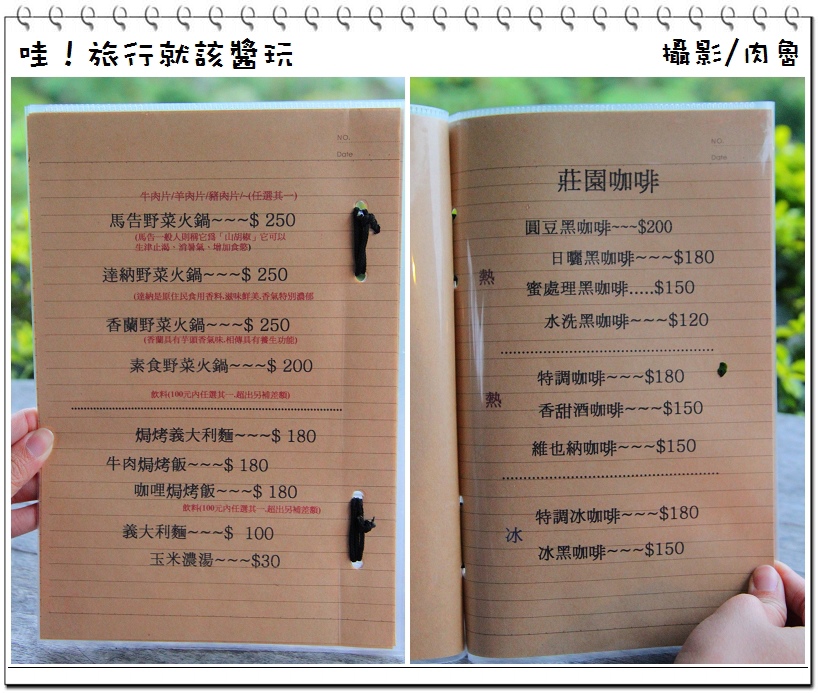 哇！旅行就該醬玩
攝影/肉魯
NO.
Date
牛肉片/羊肉片/豬肉片/~(任選其一)
馬告野菜火鍋~~~$ 250
(馬告一般人則稱它爲「山胡椒」它可以
生津止渴、消暑氣、增加食慾)
達納野菜火鍋~~~$ 250
(達納是原住民食用香料.滋味鮮美.香氣特別濃郁
香蘭野菜火鍋~~~$ 250
(香蘭具有芋頭香氣味.相傳具有養生功能)
素食野菜火鍋~~~$ 200
飲料(100元內任選其一.超出另補差額)
焗烤義大利麵~~~$ 180
牛肉焗烤飯~~~$ 180
咖哩焗烤飯~~~$ 180
飲料(100元內任選其一.超出另補差額)
義大利麵~~~$ 100
玉米濃湯~~~$30
NO.
Date
莊園咖啡
圓豆黑咖啡~~~$200
日曬黑咖啡~~~$180
熱
蜜處理黑咖啡.....$150
水洗黑咖啡~~~$120
特調咖啡~~~$180
熱
香甜酒咖啡~~~$150
維也納咖啡~~~$150
特調冰咖啡~~~$180
冰
冰黑咖啡~~~$150